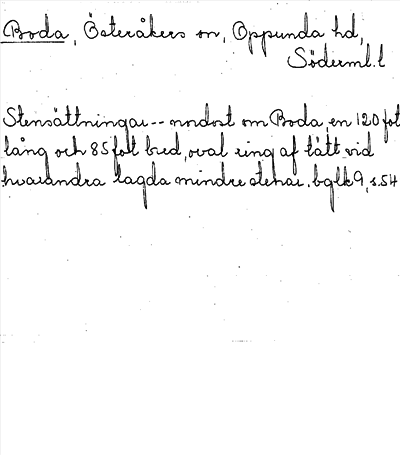 Boda, Österåkers sn, Oppunda hd,
Söderml.l
Stensättningar -- nordost om Boda, en 120 fot
lång och 85 fot bred, oval ring af tätt vid
hvarandra lagda mindre stenar. bglk 9, s.54